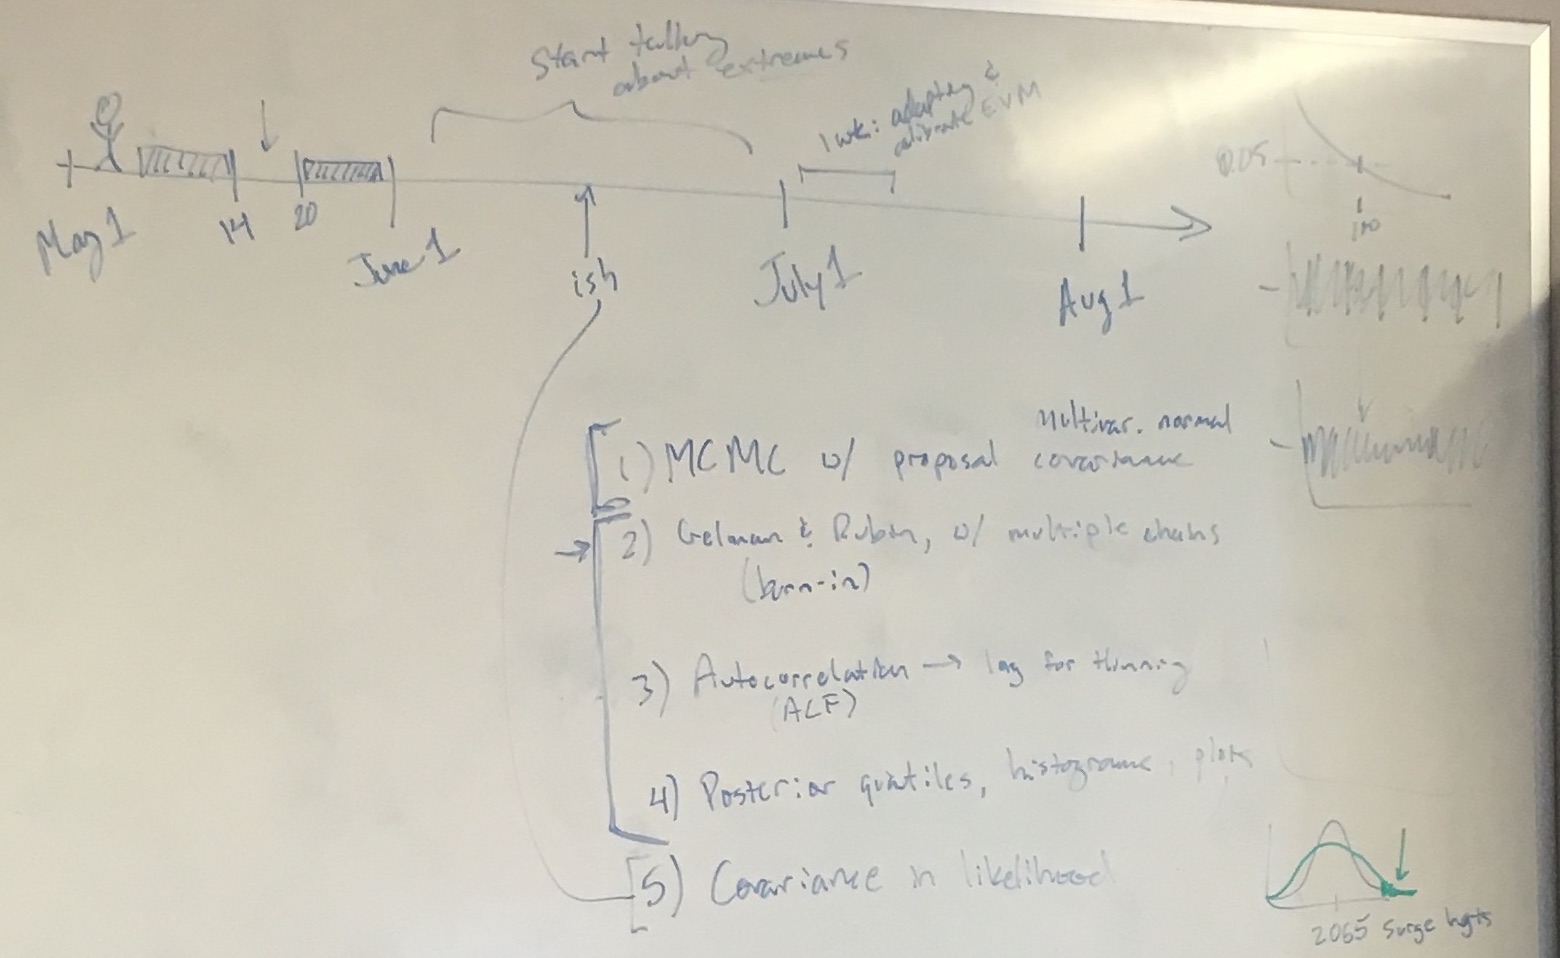 Start talking
about extremes
1 wk: adapting &
calibrate EVM
May 1
14
20
June 1
ish
July 1
Aug 1
0.05
100
1) MCMC w/ proposal covariance
Multivar. normal
2) Gelman & Rubin, w/ multiple chains
(burn-in)
3) Autocorrelation → lag for thinning
(ACF)
4) Posterior quantiles, histograms, plots
5) Covariance in likelihood
2065 surge hgts